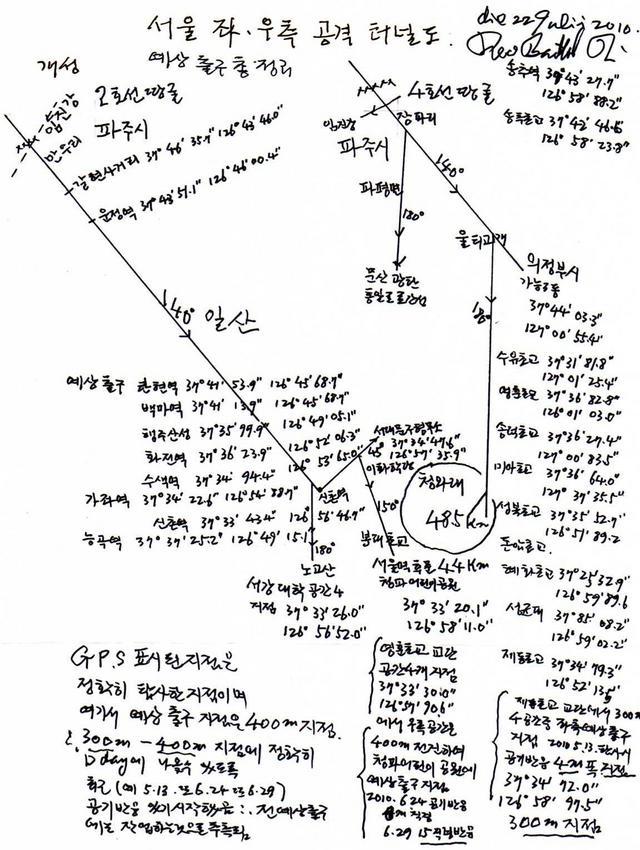 서울 좌·우측 공격 터널도.
die 22 Julij 2010.
예상 출구 총정리
개성
임진강
2호선 땅굴
파주시
갈현사거리 37°46'35.7" 126°43'46.0"
운정역 37°43'51.1" 126°46'00.4"
140°
일산
4호선 땅굴
임진강
장파리
파주시
파평면
180°
140°
문산 광탄
울티고개
180°
송추역 37°43'27.7"
126°58'88.2"
송추초교 37°42'46.6"
126°58'23.8"
의정부시
가능3동
37°44'03.3"
127°00'55.4"
수유초교 37°31'81.8"
127°01'25.4"
37°36'82.8"
126°01'03.0"
숭덕초교 37°36'27.4"
127°00'83.5"
미아초교 37°36'64.0"
127°37'35.5"
성북초교 37°35'52.7"
126°57'89.2
돈암초교.
혜화초교 37°25'32.9"
126°59'89.6
37°85'08.2"
126°59'02.2"
재동초교 37°34'79.3"
126°52'13.5"
예상출구 탄현역 37°41'53.9" 126°45'68.7"
백마역 37°41'13.9" 126°45'68.7"
행주산성 37°35'99.9" 126°49'05.1"
화전역 37°36'23.9" 126°52'06.3"
수색역 37°34'94.4" 126°53'65.0"
가좌역 37°34'22.6" 126°54'88.7"
신촌역 37°33'43.4" 126°56'46.7"
능곡역 37°37'25.2" 126°49'15.1
신촌역
45°
37°34'47.6"
126°57'35.9"
이화학당
150°
청와대
485Km
180°
노고산
서강대학 공간4
지점 37°33'26.0"
126°56'52.0"
봉래초교
서울역 후플 4.4Km
청파어린이공원
37°33'20.1"
126°58'11.0"
G.P.S 표시된 지점은
정확히 탐사한 지점이며
여기서 예상 출구 지점은 400m 지점.
∴ 300m - 400m 지점에 정확히
D day에 나올수 있도록
최근 (예 5.13. 또 6.24 또 6.29)
공기반응 있기 시작했음 ∴ 전 예상출구
에는 작업하는것으로 추측됨.
교간
공간4개 지점
37°33'30.0"
126°57'90.6"
에서 우측공간은
400m 전진하여
청파어린이 공원에
예상출구지점
2010.6.24 공기반응
6.29 15직벌반응
재동초교 교간에서 300m
4공간중 좌측예상출구
지점 2010.5.13. 탐사시
공기반응 4m 폭 지점
37°34'72.0"
126°58'97.5"
300m 지점